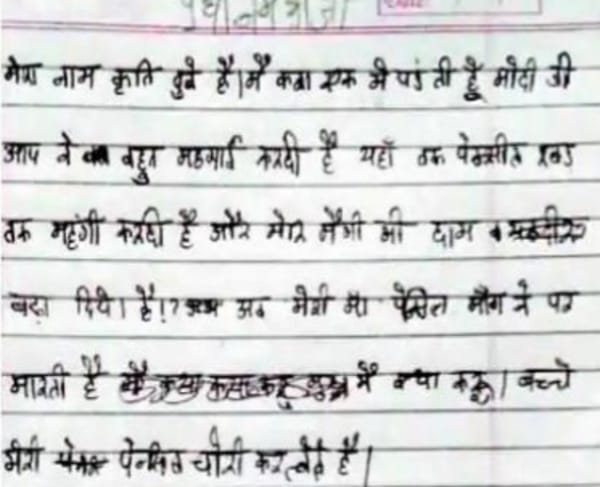 प्रधानमंत्री जी
मेरा नाम कृति दुबे है। मैं कक्षा एक में पढती हूँ मोदी जी
आप ने बहुत महगाई करदी है यहाँ तक पेन्सील रबड
तक महंगी करदी है और मेरि मैगी की दाम
बढ़ा दिये। है!? अब मेरी मा पेंसिल माँग ने पर
मारती है मैं क्या करू। बच्चे
मेरी पेन्सिल चोरी कर लेते है।